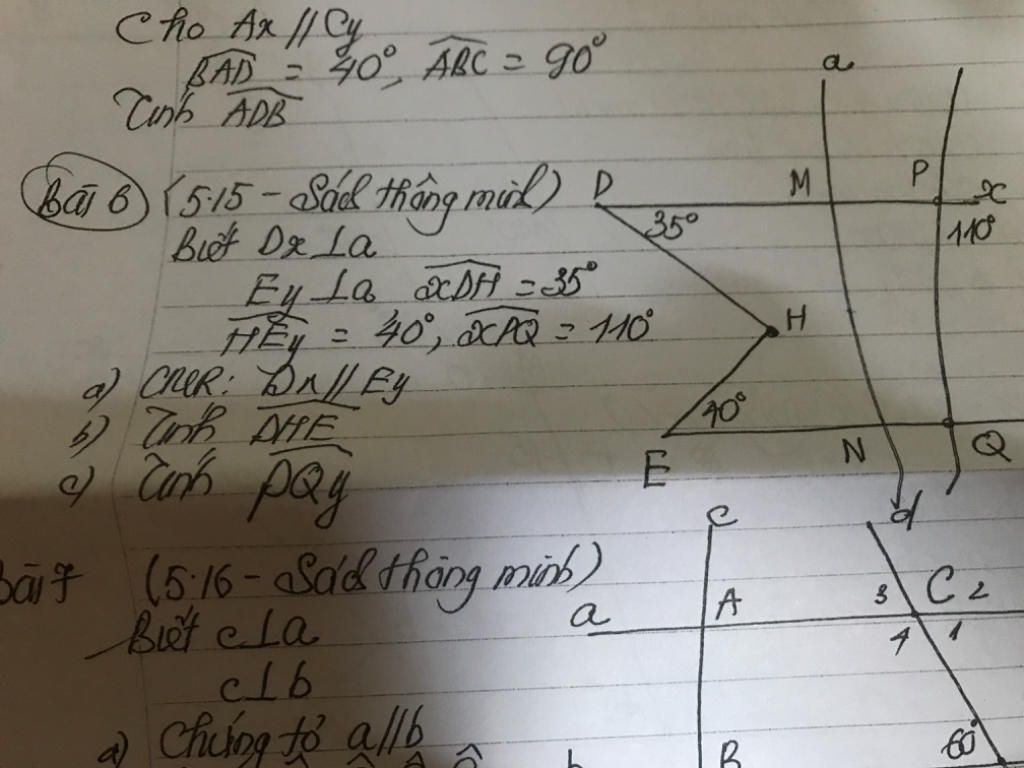 Cho Ax // Cy
BAD = 40°, ABC = 90°
Tính ADB
Bài 6 (5.15 - Sách thông minh)
Biết Dx ⊥ a
Ey ⊥ a xDH = 35°
HEy = 40°, xPQ = 110°
a) CMR: Dx // Ey
b) Tính DHE
c) Tính PQy
a
D M P x
35° 110°
H
40°
E N Q
Bài 7 (5.16 - Sách thông minh)
Biết c ⊥ a
c ⊥ b
a) Chứng tỏ a // b
c d
a A 3 C 2
4 1
60°
b B